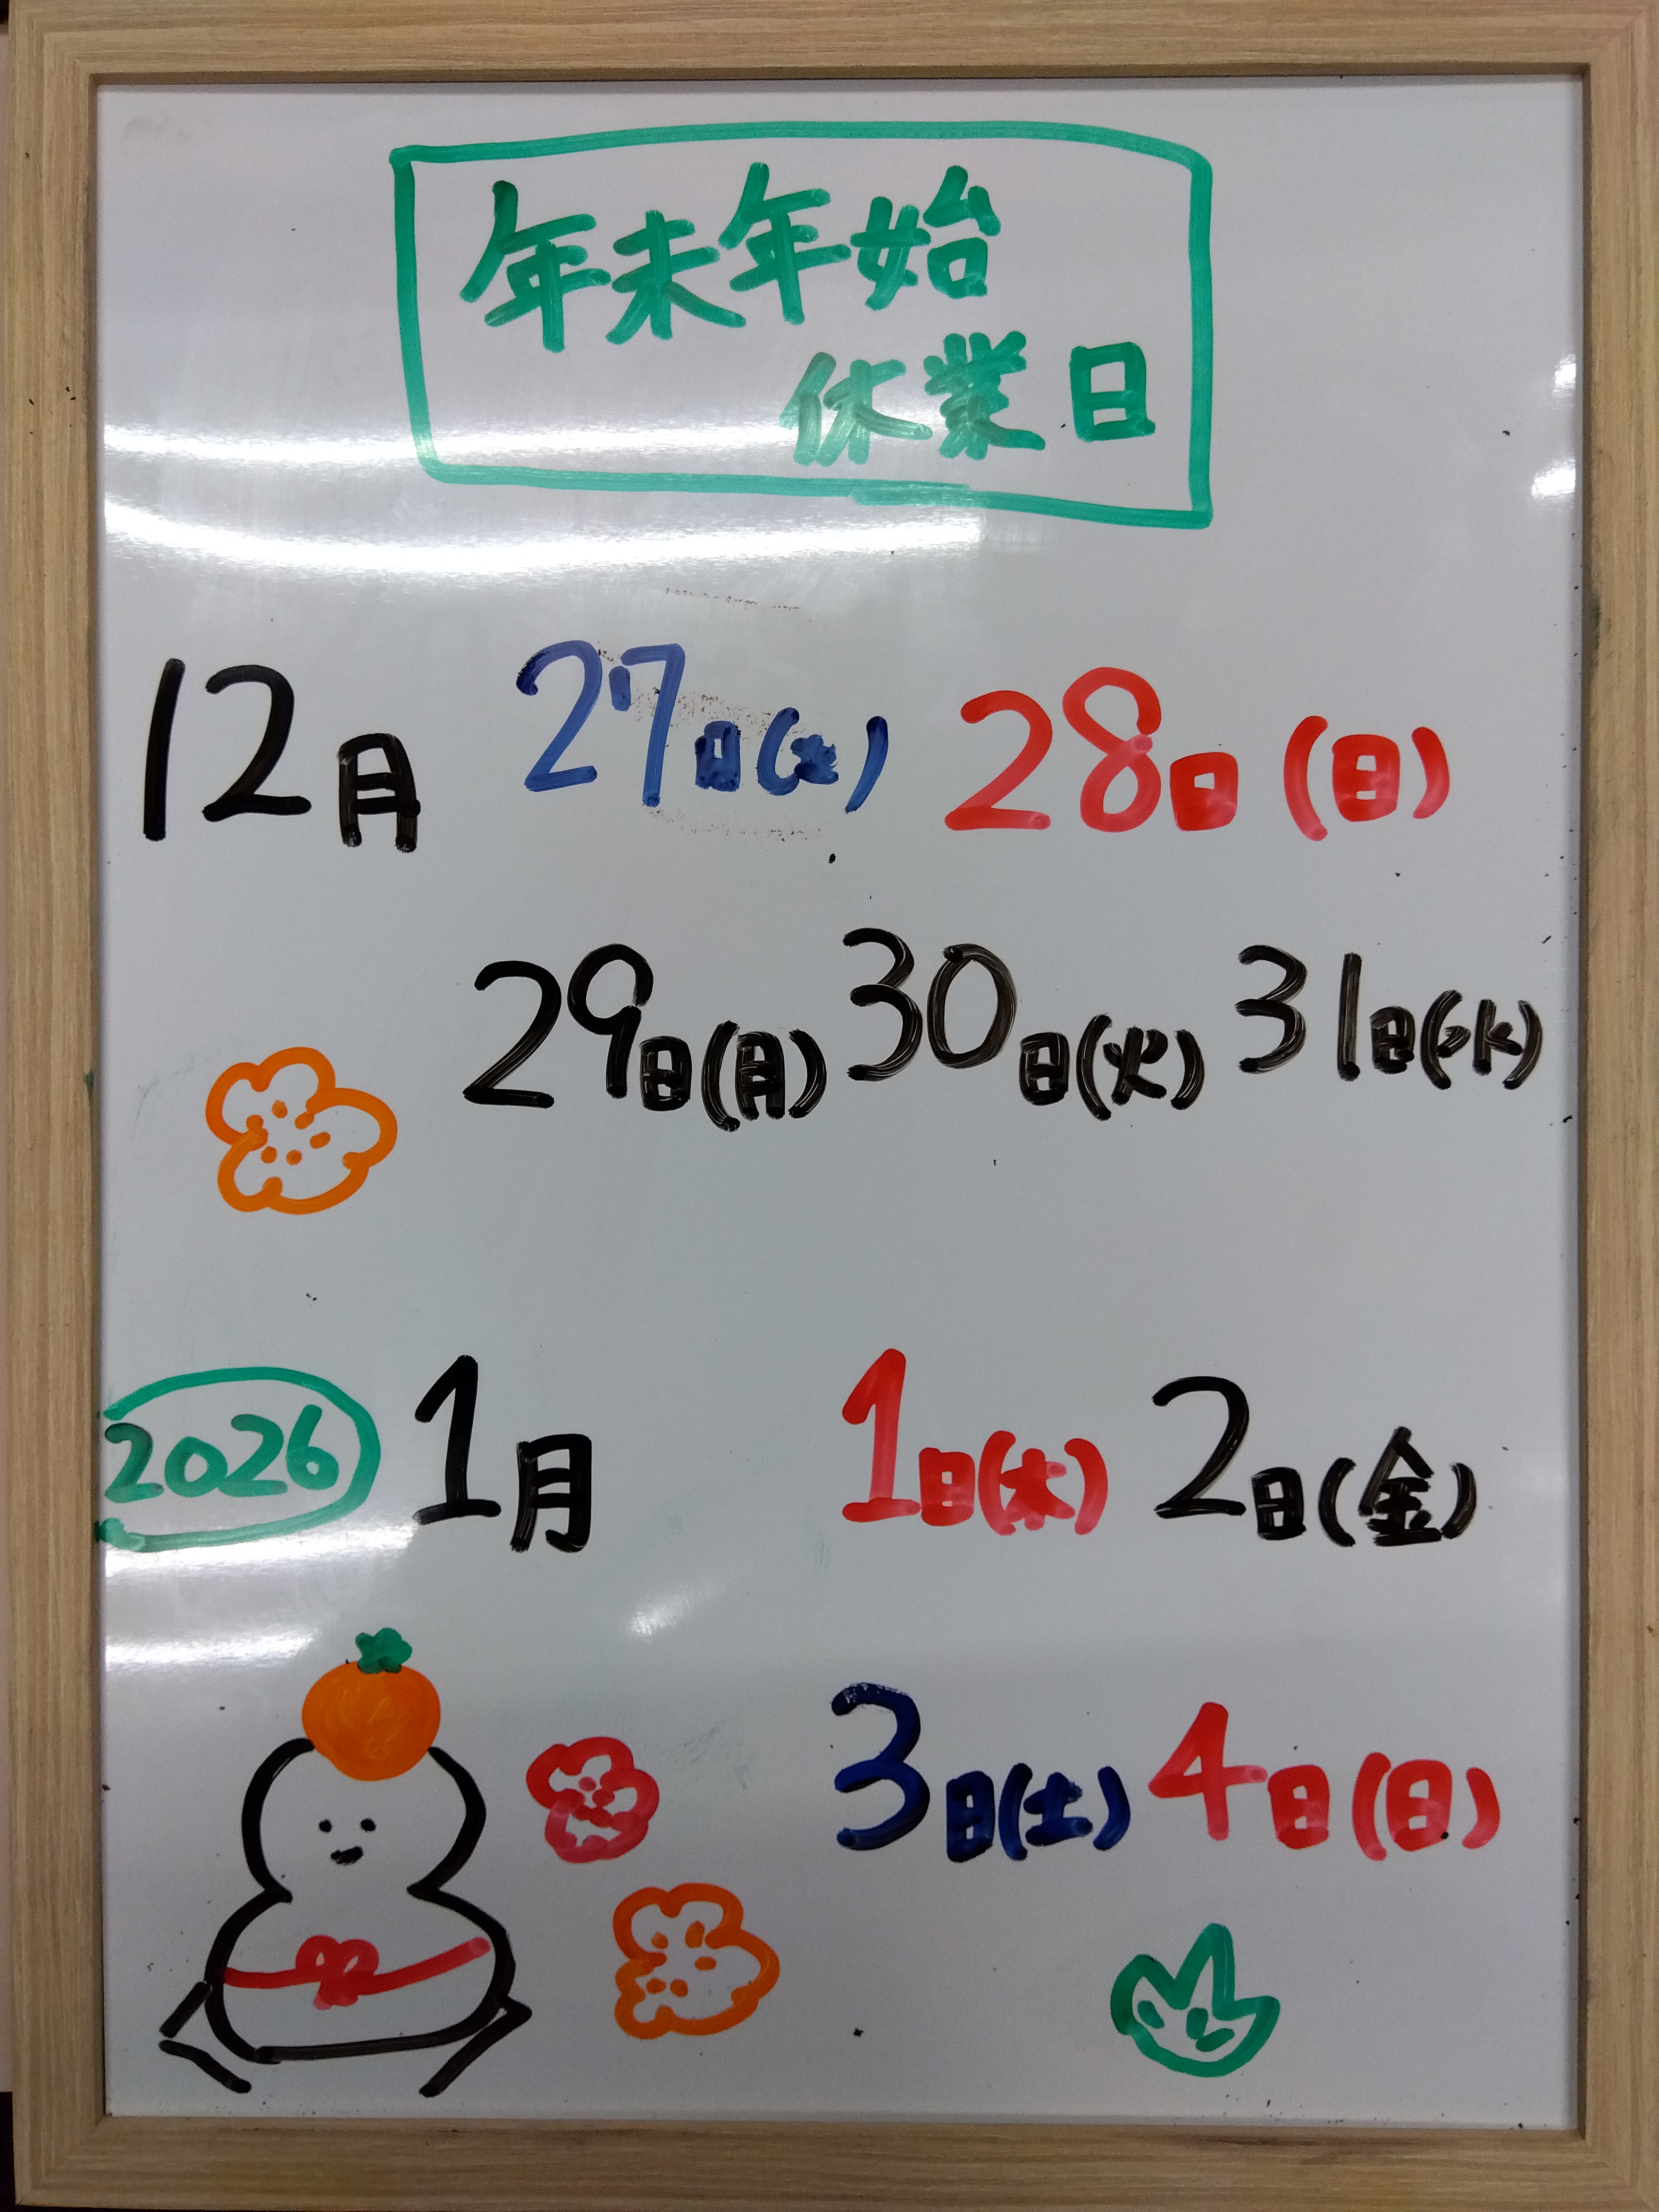 年末年始
休業日
12月 27日(土) 28日(日)
29日(月) 30日(火) 31日(水)
2026 1月 1日(木) 2日(金)
3日(土) 4日(日)